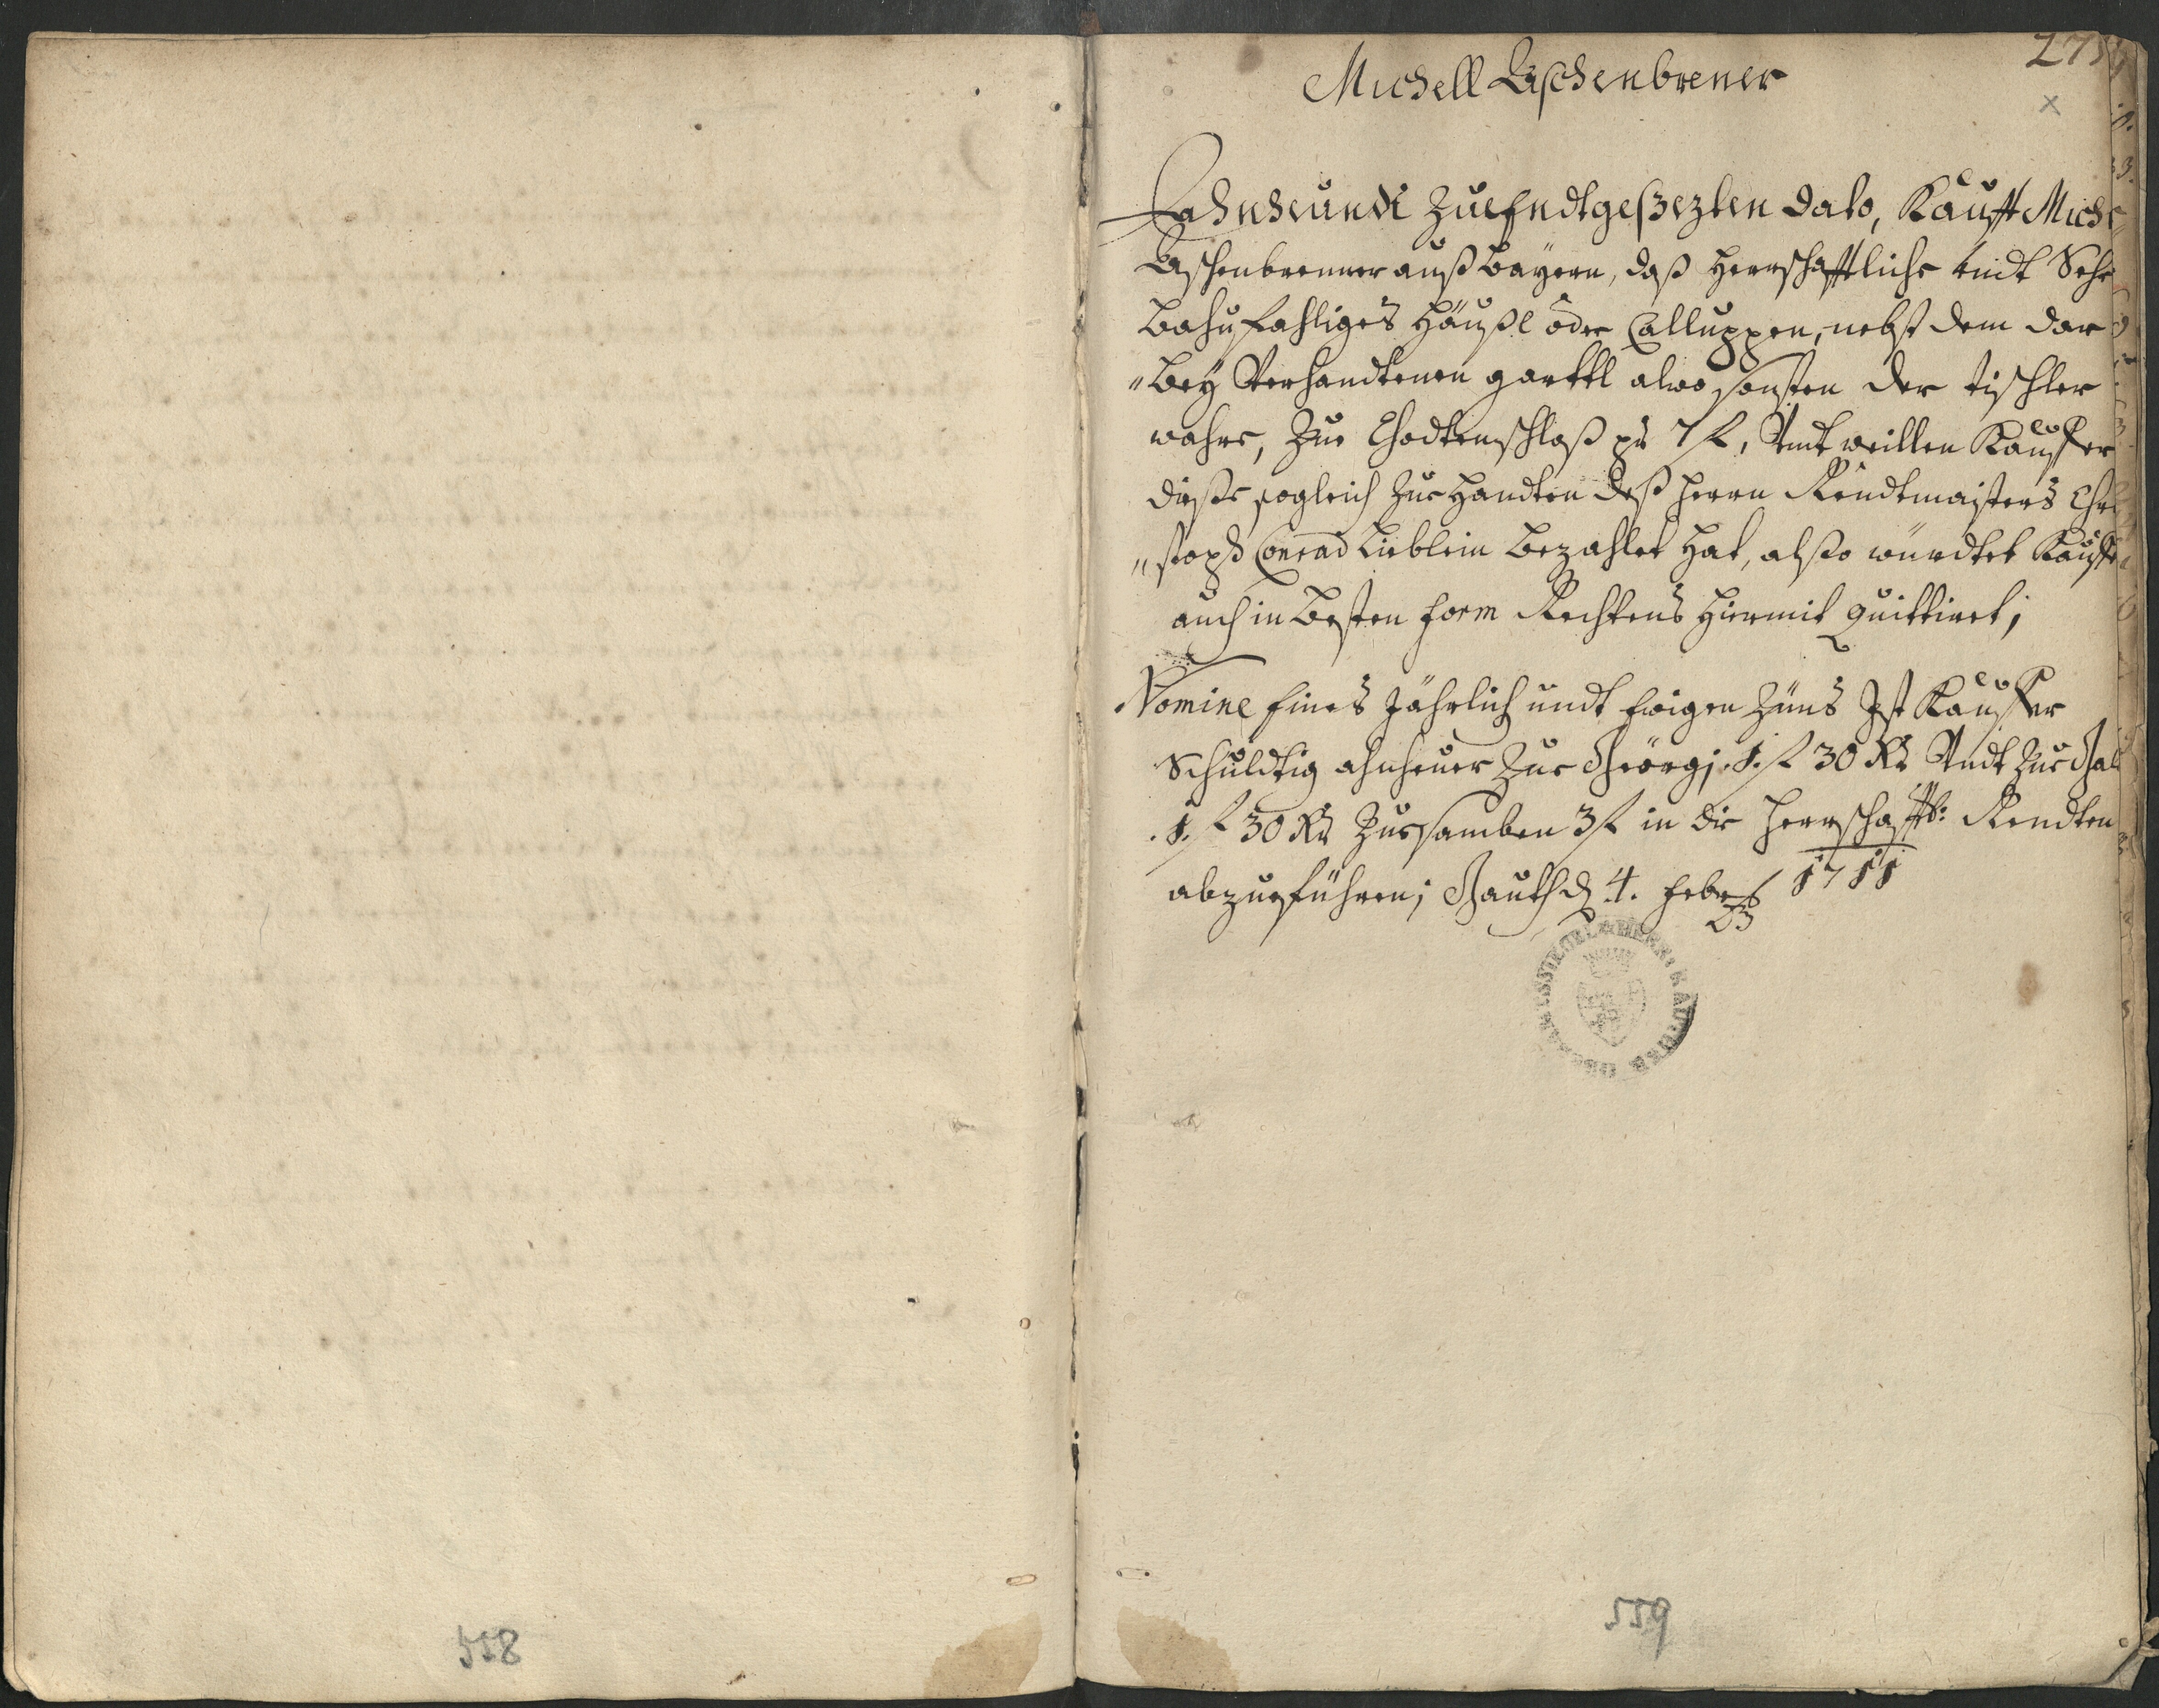 275
Michell Aschenbrener
Ahnheundt zue Endtgeßezten dato, Kaufft Miche
Aschenbrenner auß Bayern, daß herrschafftliche undt Sehr
Bahufahliges häußl oder Calluppen, nebst dem dar
"bey Verhandtenen garttl alwo sonsten der tischler
wahre, Zue Chodtenschloß pr 7 f, Undt weillen Kauffer
dieße sogleich Zue handten deß herrn Rendtmaisters Chri
"stoph Conrad Lieblein Bezahlet hat, alßo würdtet Kauffer
auch in Besten form Rechtens hiermit quittiret;
Nomine Eines Jährlich undt Ewigen Züns Ist Kauffer
Schuldtig ahnheuer Zue Geörgi 1. f 30 Kr Undt Zue Gal
1. f 30 Kr Zuesamben 3 f in die herrschafftl: Rendten
abzueführen; Gauth d 4. Febr 1711
558
559